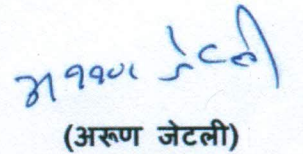 अरुण जेटली
(अरूण जेटली)